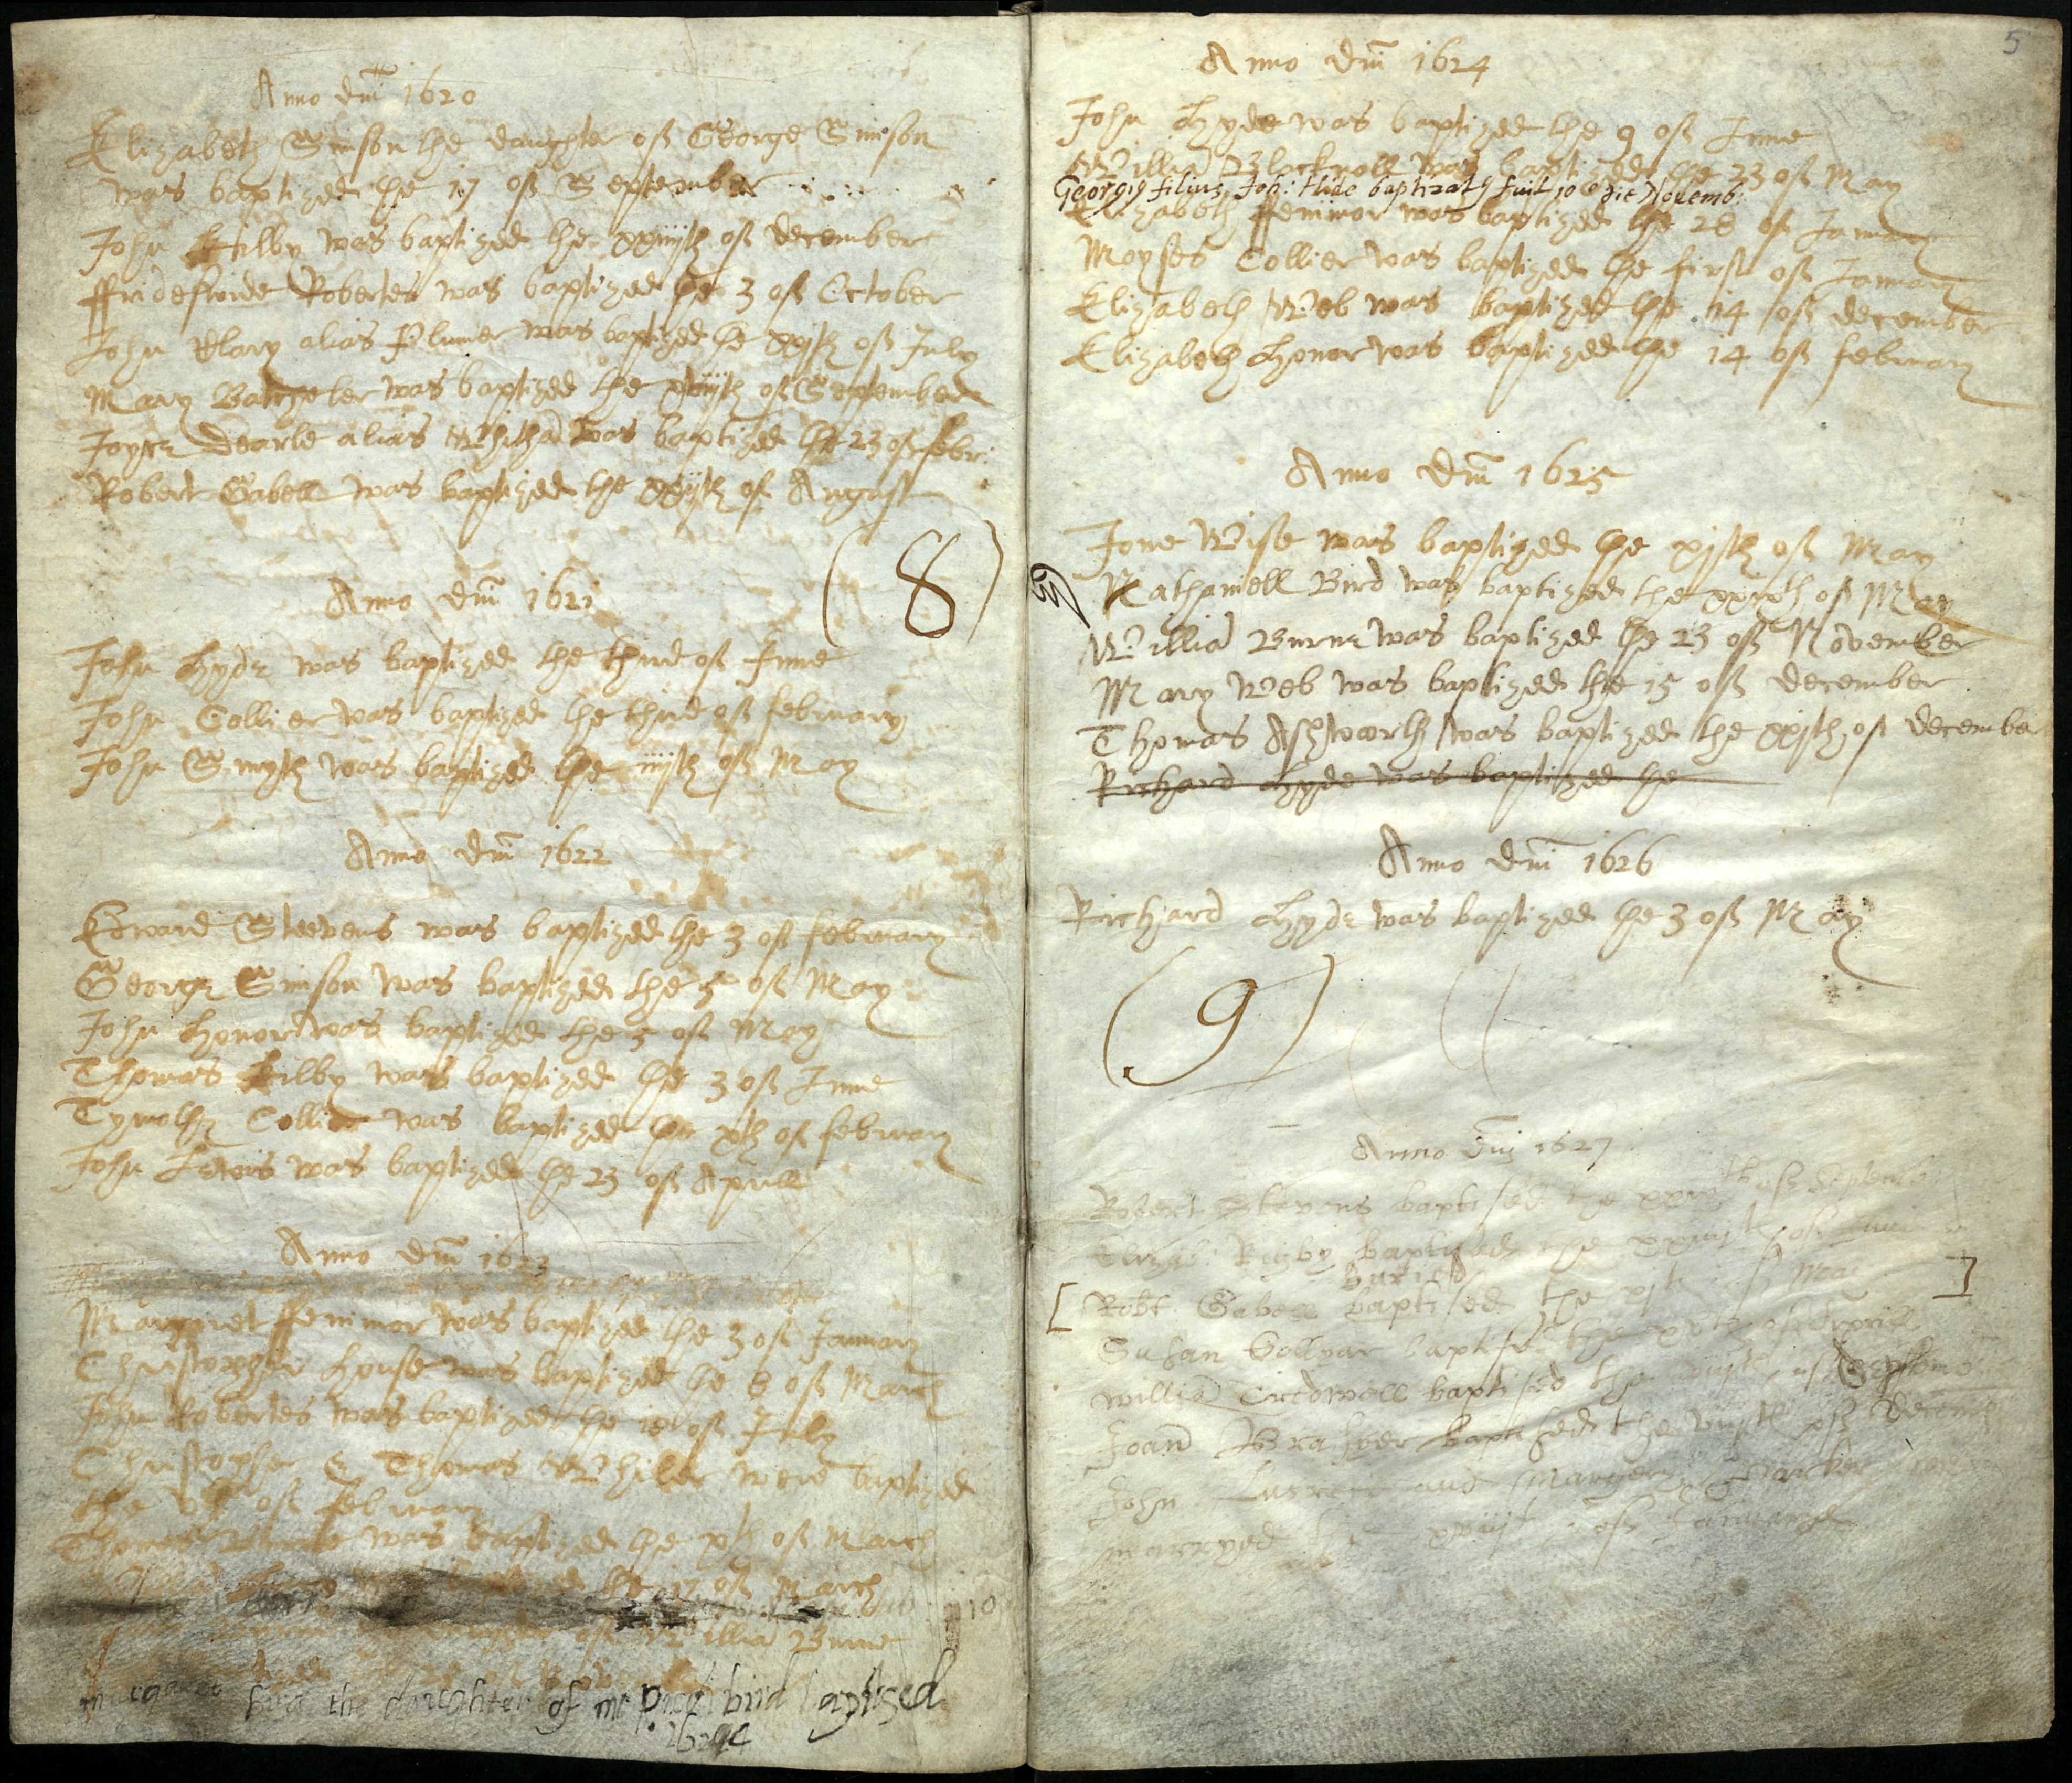 Anno dm̄ 1620
Elizabeth Simson the daughter of George Simson
was baptized the 17 of September
John Kilby was baptized the xxiiijth of december
ffrideswide Robertes was baptized the 3 of October
John Clary alias Plumer was baptized the xxjth of July
Mary Batcheler was baptized the of September
Joyce dearle alias Whithād was baptized the 23 of febr:
Robert Gabell was baptized the xxijth of August
(8)
Anno dm̄ 1621
John Hyde was baptized the third of June
John Collier was baptized the third of february
John Smyth was baptized the iiijth of May
Anno dm̄ 1622
Edward Steevens was baptized the 3 of february
George Simson was baptized the 5 of May
John Honor was baptized the 5 of May
Thomas Kilby was baptized the 3 of June
Tymothy Collier was baptized the xth of february
John Lewis was baptized the 23 of Aprill
Anno dm̄ 1623
Margaret ffenimor was baptized the 3 of January
Christopher House was baptized the 6 of March
John Robertes was baptized the 18 of July
Christopher & Thomas Whiler were baptized
the of february
Thomas was baptized the xth of March
the 17 of March
10
of Willia͂ Burne
margaret bird the daughter of mr bird baptized
Anno dm̄ 1624
5
John Hyde was baptized the 9 of June
Willia͂ Blacknoll was baptized the 23 of May
Georgi9 filius Joh: Hide baptizat9 fuit 10o die Novemb:
Elizabeth ffenimor was baptized the 28 of January
Moyses Collier was baptized the first of January
Elizabeth Web was baptized the 14 of december
Elizabeth Honor was baptized the 14 of february
Anno dm̄ 1625
Jone Wise was baptized the xjth of May
Nathaniell Bird was baptized the xxixth of May
Willia͂ Burne was baptized the 23 of November
Mary Web was baptized the 15 of december
Thomas Ashworth was baptized the xxjth of december
Richard Hyde was baptized the
Anno dm̄ 1626
Richard Hyde was baptized the 3 of May
(9)
Anno dm̄ 1627
Robert Stevens baptised the of Septemb
Elizab: Rigby baptised the of
buried
[ Robt Gabell baptised the xjth of May ]
Susan Collyar baptised the of Aprill
Willia͂ Tredwell baptised the of Septemb
Joan͂ baptised the viijth of decemb
John and Margery
marryed the of January